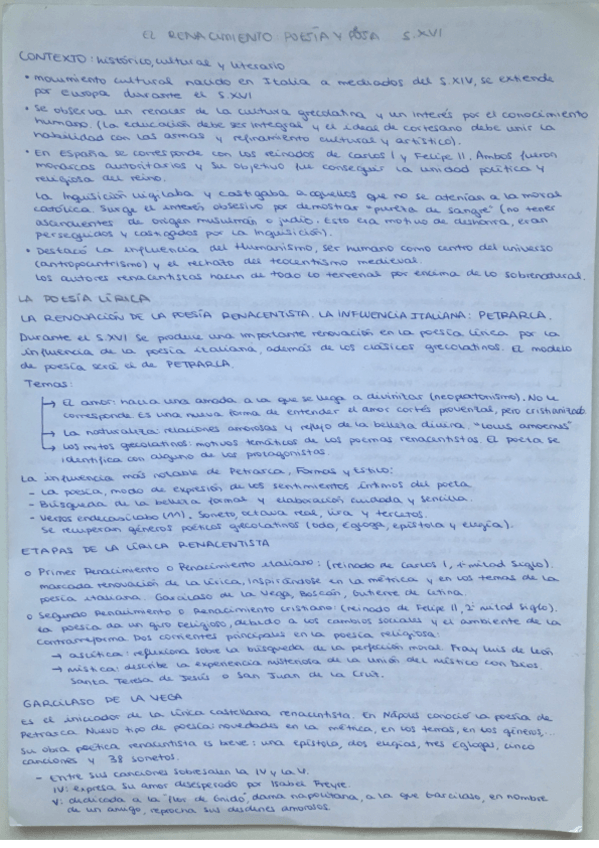 EL RENACIMIENTO: POESÍA Y PROSA S.XVI
CONTEXTO: histórico, cultural y literario
• Movimiento cultural nacido en Italia a mediados del S.XIV, se extiende
por Europa durante el S.XVI
• Se observa un renacer de la cultura grecolatina y un interés por el conocimiento
humano. (La educación debe ser integral y el ideal de cortesano debe unir la
habilidad con las armas y refinamiento cultural y artístico).
• En España se corresponde con los reinados de Carlos I y Felipe II. Ambos fueron
monarcas autoritarios y su objetivo fue conseguir la unidad política y
religiosa del reino.
La Inquisición vigilaba y castigaba a aquellos que no se atenían a la moral
católica. Surge el interés obsesivo por demostrar "pureza de sangre" (no tener
ascendientes de origen musulmán o judío). Esto era motivo de deshonra, eran
perseguidos y castigados por la Inquisición).
• Destacó la influencia del Humanismo, ser humano como centro del universo
(antropocentrismo) y el rechazo del teocentrismo medieval.
Los autores renacentistas hacen de todo lo terrenal por encima de lo sobrenatural.
LA POESÍA LÍRICA
LA RENOVACIÓN DE LA POESÍA RENACENTISTA. LA INFLUENCIA ITALIANA: PETRARCA.
Durante el S.XVI se produce una importante renovación en la poesía lírica por la
influencia de la poesía italiana, además de los clásicos grecolatinos. El modelo
de poesía será el de PETRARCA.
Temas:
→ El amor: hacia una amada a la que se llega a divinizar (neoplatonismo). No le
corresponde es una nueva forma de entender el amor cortés provenzal, pero cristianizado.
→ La naturaleza: relaciones amorosas y reflejo de la belleza divina. "Locus amoenus"
→ Los mitos grecolatinos: motivos temáticos de los poemas renacentistas. El poeta se
identifica con alguno de los protagonistas.
La influencia más notable de Petrarca, Formas y Estilo:
- La poesía, modo de expresión de los sentimientos íntimos del poeta.
- Búsqueda de la belleza formal y elaboración cuidada y sencilla.
- Versos endecasílabo (11). Soneto, octava real, lira y tercetos.
Se recuperan géneros poéticos grecolatinos (oda, égloga, epístola y elegía).
ETAPAS DE LA LÍRICA RENACENTISTA
o Primer Renacimiento o Renacimiento italiano: (reinado de Carlos I, 1ª mitad Siglo).
marcada renovación de la lírica, inspirándose en la métrica y en los temas de la
poesía italiana. Garcilaso de la Vega, Boscán, Gutierre de Cetina.
o Segundo Renacimiento o Renacimiento cristiano: (reinado de Felipe II, 2ª mitad Siglo).
La poesía da un giro religioso, debido a los cambios sociales y el ambiente de la
Contrarreforma. Dos corrientes principales en la poesía religiosa:
→ ascética: reflexiona sobre la búsqueda de la perfección moral. Fray Luis de León
→ mística: describe la experiencia misteriosa de la unión del místico con Dios.
Santa Teresa de Jesús o San Juan de la Cruz.
GARCILASO DE LA VEGA
Es el iniciador de la lírica castellana renacentista. En Nápoles conoció la poesía de
Petrarca. Nuevo tipo de poesía: novedades en la métrica, en los temas, en los géneros,...
Su obra poética renacentista es breve: una epístola, dos elegías, tres églogas, cinco
canciones y 38 sonetos.
- Entre sus canciones sobresalen la IV y la V.
IV: expresa su amor desesperado por Isabel Freyre.
V: dedicada a la "flor de Gnido", dama napolitana, a la que Garcilaso, en nombre
de un amigo, reprocha sus desdenes amorosos.